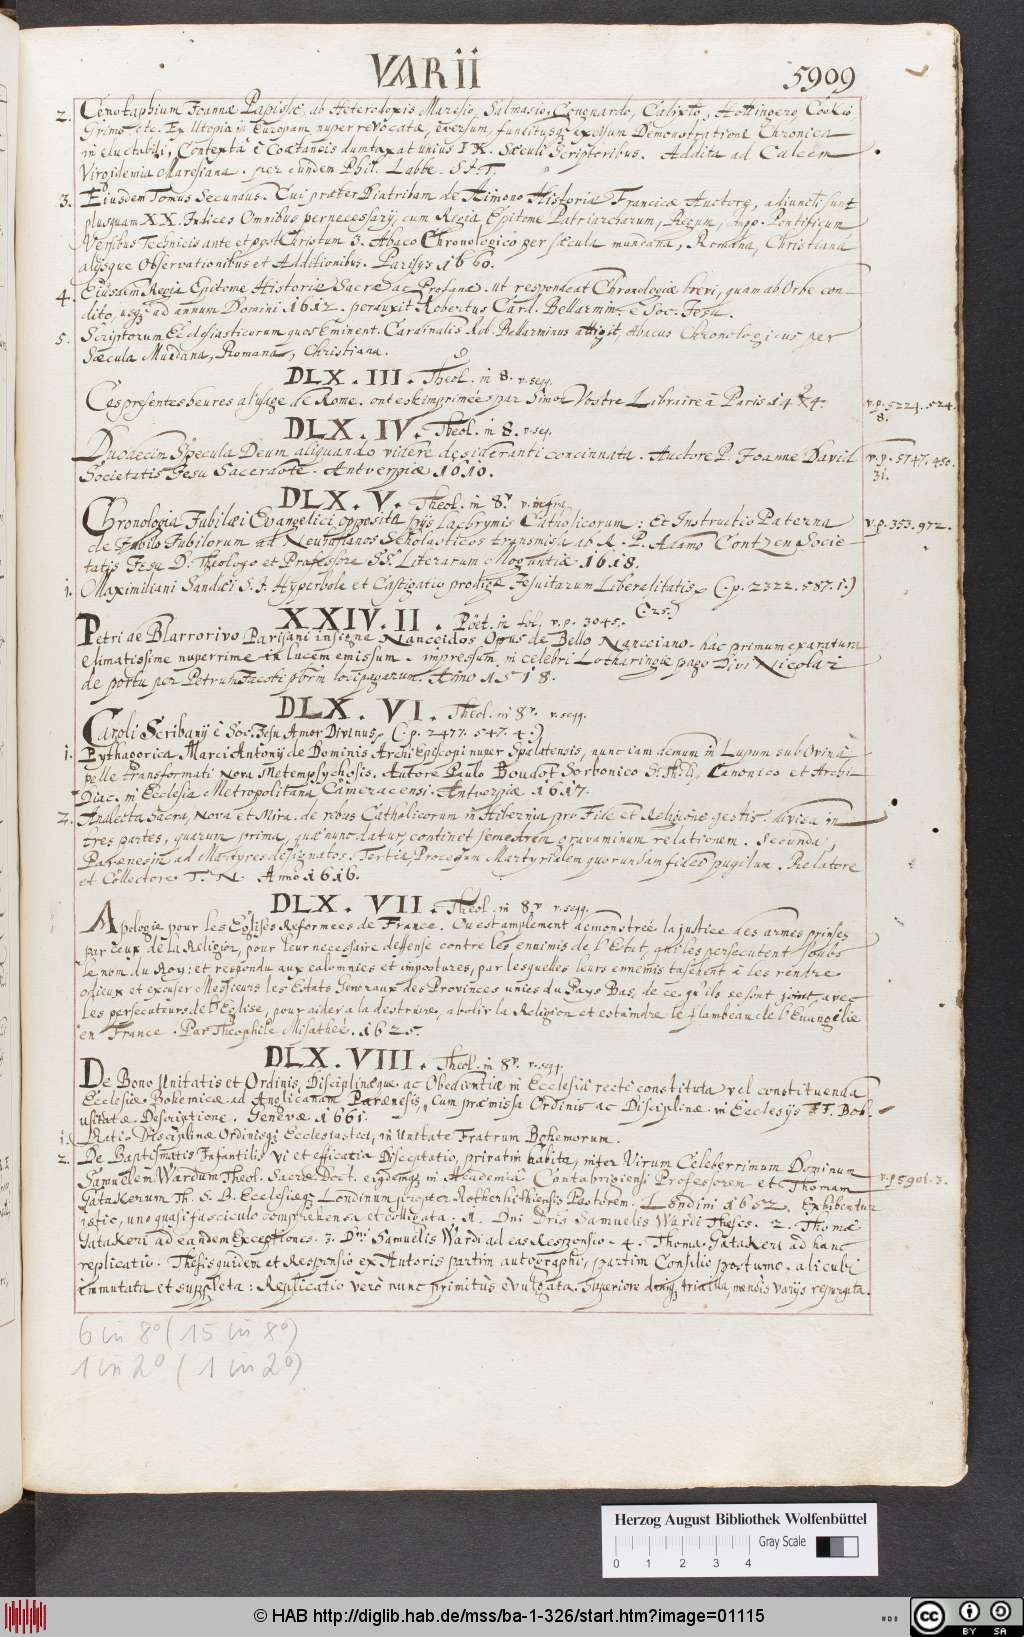 VARII 5909
2. Cenotaphium Joannæ Papissæ, ab Heterodoxis Maresio, Salmasio, Calixto, Hottingero, Cookio
etc. Ex Utopia in Europam nuper revocatæ, eversum, funditusq; excisum Demonstratione Chronica
in eluctabili, Contextâ è Coætaneis dumtaxat unius IX. Sæculi Scriptoribus. Addita ad Calcem
Maresiana. per eundem Phil. Labbe S. I.
3. Ejusdem Tomus Secundus. Cui præter Diatribam de Aimono Historiæ Francicæ Auctore, adjuncti sunt
plusquam XX. Indices Omnibus pernecessarij cum Regia Epitome Patriarcharum, Regum, Imp. Pontificum
Versibus Technicis ante et post Christum 3. Abaco Chronologico per sæcula mundana, Romana, Christiana
alijsque Observationibus et Additionibus. Parisijs 1660.
4. Ejusdem Regia Epitome Historiæ Sacræ ac Profanæ. ut respondeat Chronologiæ brevi, quam ab Orbe con-
dito, usq; ad annum Domini 1612. perduxit Robertus Card. Bellarmin. è Soc. Jesu.
5. Scriptorum Ecclesiasticorum quos Eminent. Cardinalis Rob. Bellarminus attigit, Abacus Chronologicus per
Sæcula Mundana, Romana, Christiana.
DLX. III. Theol. in 8. v. seqq.
Ces presentes heures a lusage de Rome. ont esté imprimées par Simon Vostre Libraire à Paris v. p. 5224. 524.
8.
DLX. IV. Theol. in 8. v. seq.
Duodecim Specula Deum aliquando videre desideranti concinnata. Auctore P. Joanne David v. p. 5747. 450.
Societatis Jesu Sacerdote. Antverpiæ 1610. 31.
DLX. V. Theol. in 8º v. infra
Chronologia Jubilæi Evangelici opposita pijs Lachrymis Catholicorum: Et Instructio Paterna v. p. 353. 972.
de Jubilo Jubilorum ad Scholasticos transmissa ab R. P. Adamo Contzen Socie-
tatis Jesu D. Theologo et Professore SS. Literarum Moguntiæ. 1618.
1. Maximiliani Sandæi S. I. Hyperbole et Castigatio prodigæ Jesuitarum Liberalitatis (: p. 2322. 587. 1:)
XXIV. II. Poët. in fol. v. p. 3045. (: 25:)
Petri de Blarrorivo Parisani insigne Nanceidos Opus de Bello Nanceiano. hac primum exaratura
elimatissime nuperrime in lucem emissum. impressum in celebri Lotharingie pago Divi Nicolai
de portu per Petrum Jacobi pbrm loci paganum. Anno 1518.
DLX. VI. Theol. in 8º. v. seqq.
Caroli Scribanij è Soc. Jesu Amor Divinus. (: p. 2477. 547. 4:)
1. Pythagorica Marci Antonij de Dominis ArchiEpiscopi nuper Spalatensis, nunc iam demum in Lupum sub Ovina
pelle transformati Nova Metempsychosis. Autore Paulo Boudot Sorbonico Canonico et Archi-
Diac. in Ecclesia Metropolitana Cameracensi. Antverpiæ 1617.
2. Analecta Sacra, Nova et Mira. de rebus Catholicorum in Hibernia pro Fide et Religione gestis. divisa in
tres partes, quarum prima, quæ nunc datur, continet semestrem gravaminum relationem. Secunda,
Parænesin ad Martyres designatos. Tertia, Processum Martyrialem quorundam fidei pugilum. Relatore
et Collectore T. N. Anno 1616.
DLX. VII. Theol. in 8º v. seqq.
Apologie pour les Eglises Reformees de France. Ou est amplement demonstrée la justice des armes prinses
par ceux de la Religion, pour leur necessaire deffense contre les ennimis de l'Etat, qui les persecutent soubs
le nom du Roy: et respondu aux calomnies et impostures, par lesquelles leurs ennemis taschent à les rendre
odieux et excuser Messieurs les Estats Generaux des Provinces unies du Pays Bas, de ce qu'ils se sont joint avec
les persecuteurs de l'Eglise, pour aider a la destruire, abolir la Religion et estaindre le flambeau de l'Evangelie
en France. Par Theophile Misathée. 1625.
DLX. VIII. Theol. in 8º. v. seqq.
De Bono Unitatis et Ordinis, Disciplinæque ac Obedientiæ in Ecclesiâ recte constituta vel constituenda
Ecclesiæ Bohemicæ ad Anglicanam Parænesis, Cum præmissa Ordinis ac Disciplinæ in Ecclesijs FF. Boh.
usitatæ Descriptione. Genevæ. 1661.
1. Ratio Disciplinæ Ordinisq; Ecclesiastici, in Unitate Fratrum Bohemorum.
2. De Baptismatis Infantilis vi et efficatia Disceptatio, privatim habita, inter Virum Celeberrimum Dominum
Samuelem Wardum Theol. Sacræ Doct. eijdemq; in Academiâ Cantabrigiensi Professorem et Thomam v. p 5901. 3.
Gatakerum Th. S. B. Ecclesiæq; Londinum propter Rotherhithiensis Pastorem. Londini 1652. Exhibentur
istic, uno quasi fasciculo comprehensa et colligata. 1. Dni Dris Samuelis Wardi Theses. 2. Thomæ
Gatakeri ad eandem Exceptiones. 3. Dni Samuelis Wardi ad eas Responsio. 4. Thomæ Gatakeri ad hanc
replicatio. Thesis quidem et Responsio ex Autoris partim autographo, partim Consilio postumo. alicubi
immutata et suppleta: Replicatio vero nunc primitus evulgata. Superiore mendis varijs repurgata.
6 in 8º (15 in 8º)
1 in 2º (1 in 2º)
Herzog August Bibliothek Wolfenbüttel
Gray Scale
0 1 2 3 4
© HAB http://diglib.hab.de/mss/ba-1-326/start.htm?image=01115
cc BY SA